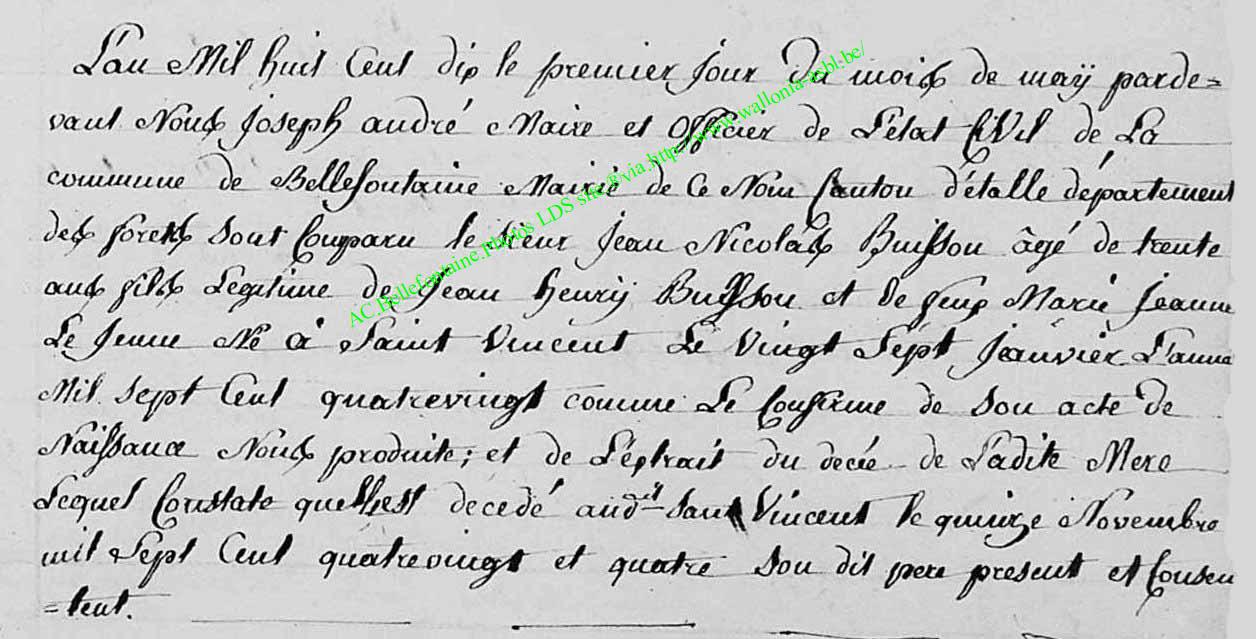 L'an Mil huit Cent dix le premier Jour du mois de maÿ parde=
vant Nous Joseph andré Maire et Officier de L'état CiVil de La
commune de Bellefontaine Mairie de Ce Nom Canton d'étalle département
des forets sont Comparu le sieur Jean Nicolas Buisson âgé de trente
ans fils Legitime de Jean henrÿ Buisson et de feue Marie Jeanne
Le Jeune Né à Saint Vincent Le Vingt Sept Jeanvier L'anné
Mil sept Cent quatrevingt comme Le Confirme de son acte de
Naissance Nous produite; et de L'extrait du decée de Ladite Mere
Lequel Constate quelle est decedé aud.it Saint Vincent le quinze Novembre
mil Sept Cent quatrevingt et quatre son dit pere present et Consen
=tent.
AC.Bellefontaine.photos LDS site®via.http://www.wallonia-asbl.be/